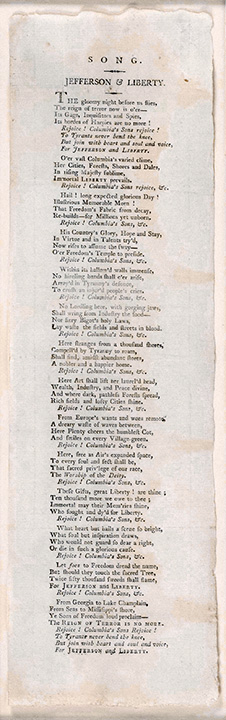 SONG.
JEFFERSON & LIBERTY.
THE gloomy night before us flies,
The reign of terror now is o'er—
Its Gags, Inquisitors and Spies,
Its hordes of Harpies are no more!
Rejoice! Columbia's Sons rejoice!
To Tyrants never bend the knee,
But join with heart and soul and voice,
For JEFFERSON and LIBERTY.
O'er vast Columbia's varied clime,
Her Cities, Forests, Shores and Dales,
In rising Majesty sublime,
Immortal LIBERTY prevails.
Rejoice! Columbia's Sons rejoice, &c.
Hail! long expected glorious Day!
Illustrious Memorable Morn!
That Freedom's Fabric from decay,
Re-builds—for Millions yet unborn.
Rejoice! Columbia's Sons, &c.
His Country's Glory, Hope and Stay,
In Virtue and in Talents try'd,
Now rises to assume the sway—
O'er Freedom's Temple to preside.
Rejoice! Columbia's Sons, &c.
Within its hallow'd walls immense,
No hireling bands shall e'er arise,
Array'd in Tyranny's defence,
To crush an injur'd people's cries.
Rejoice! Columbia's Sons, &c.
No Lordling here, with gorging jaws,
Shall wring from Industry the food—
Nor fiery Bigot's holy Laws,
Lay waste the fields and streets in blood.
Rejoice! Columbia's Sons, &c.
Here strangers from a thousand shores,
Compell'd by Tyranny to roam,
Shall find, amidst abundant stores,
A nobler and a happier home.
Rejoice! Columbia's Sons, &c.
Here Art shall lift her laurel'd head,
Wealth, Industry, and Peace divine,
And where dark, pathless Forests spread,
Rich fields and lofty Cities shine.
Rejoice! Columbia's Sons, &c.
From Europe's wants and woes remote,
A dreary waste of waves between,
Here Plenty cheers the humblest Cot,
And smiles on every Village-green.
Rejoice! Columbia's Sons, &c.
Here, free as Air's expanded space,
To every soul and sect shall be,
That sacred priv'lege of our race,
The Worship of the Deity.
Rejoice! Columbia's Sons, &c.
These Gifts, great Liberty! are thine;
Ten thousand more we owe to thee;
Immortal may their Mem'ries shine,
Who fought and dy'd for Liberty.
Rejoice! Columbia's Sons, &c.
What heart but hails a scene so bright,
What soul but inspiration draws,
Who would not guard so dear a right,
Or die in such a glorious cause.
Rejoice! Columbia's Sons, &c.
Let foes to Freedom dread the name,
But should they touch the sacred Tree,
Twice fifty thousand swords shall flame,
For JEFFERSON and LIBERTY.
Rejoice! Columbia's Sons, &c.
From Georgia to Lake Champlain,
From Seas to Mississippi's shore,
Ye Sons of Freedom loud proclaim—
The REIGN OF TERROR IS NO MORE.
Rejoice! Columbia's Sons Rejoice!
To Tyrants never bend the knee,
But join with heart and soul and voice,
For JEFFERSON and LIBERTY.